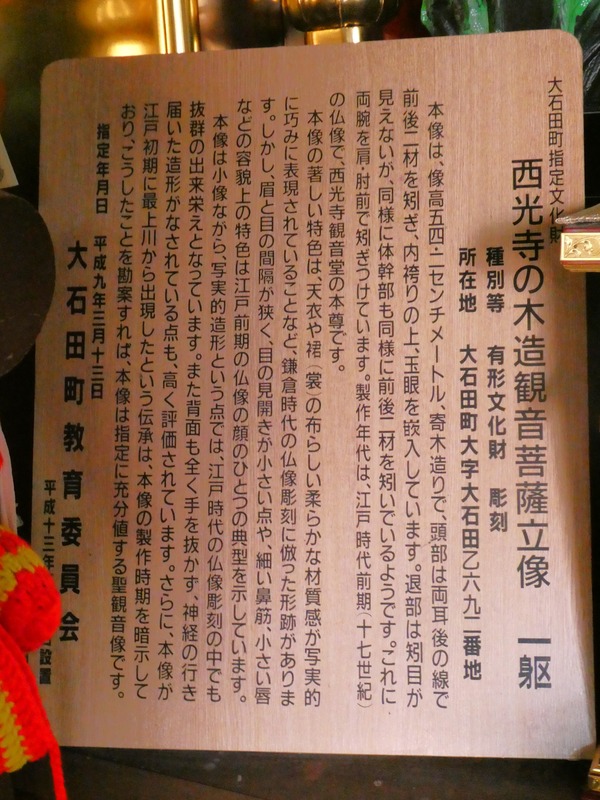 大石田町指定文化財
西光寺の木造観音菩薩立像 一躯
種別等 有形文化財 彫刻
所在地 大石田町大字大石田乙六九二番地
本像は、像高五四・二センチメートル、寄木造りで、頭部は両耳後の線で
前後二材を矧ぎ、内袴りの上、玉眼を嵌入しています。退部は矧目が
見えないが、同様に体幹部も同様に前後二材を矧いでいるようです。これに
両腕を肩・肘前で矧ぎつけています。製作年代は、江戸時代前期(十七世紀)
の仏像で、西光寺観音堂の本尊です。
本像の著しい特色は、天衣や裙(裳)の布らしい柔らかな材質感が写実的
に巧みに表現されていることなど、鎌倉時代の仏像彫刻に倣った形跡がありま
す。しかし、眉と目の間隔が狭く、目の見開きが小さい点や、細い鼻筋、小さい唇
などの容貌上の特色は江戸前期の仏像の顔のひとつの典型を示しています。
本像は小像ながら、写実的造形という点では、江戸時代の仏像彫刻の中でも
抜群の出来栄えとなっています。また背面も全く手を抜かず、神経の行き
届いた造形がなされている点も、高く評価されています。さらに、本像が
江戸初期に最上川から出現したという伝承は、本像の製作時期を暗示して
おり、こうしたことを勘案すれば、本像は指定に充分値する聖観音像です。
指定年月日 平成九年三月十三日
大石田町教育委員会
平成十三年 設置